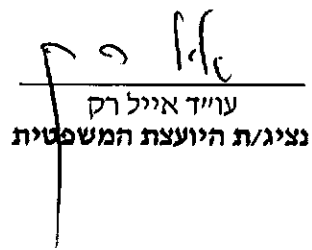 אייל רק
עו״ד אייל רק
נציג/ת היועצת המשפטית